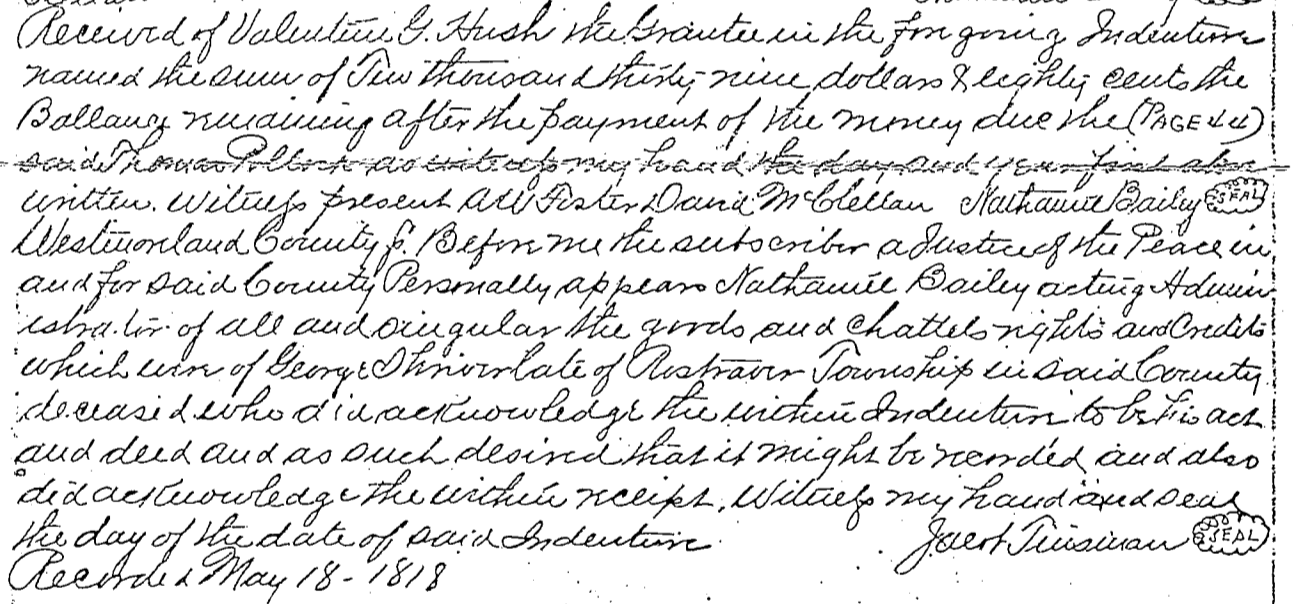 Received of Valentine G. Hush the Grantee in the foregoing Indenture
named the sum of Two thousand thirty nine dollars & eighty cents the
Ballance remaining after the payment of the money due the (PAGE 44)
said Thomas Pollock as witness my hand the day and year first above
written. Witness present AW Foster David McClellan Nathaniel Bailey SEAL
Westmoreland County S. Before me the subscriber a Justice of the Peace in
and for said County Personally appears Nathaniel Bailey acting Admin
istrator of all and singular the goods and chattels rights and Credits
which were of George Shriver late of Rostraver Township in said County
deceased who did acknowledge the within Indenture to be his act
and deed and as such desired that it might be recorded and also
did acknowledge the within receipt. Witness my hand and seal
the day of the date of said Indenture Jacob Tinsman SEAL
Recorded May 18 - 1818